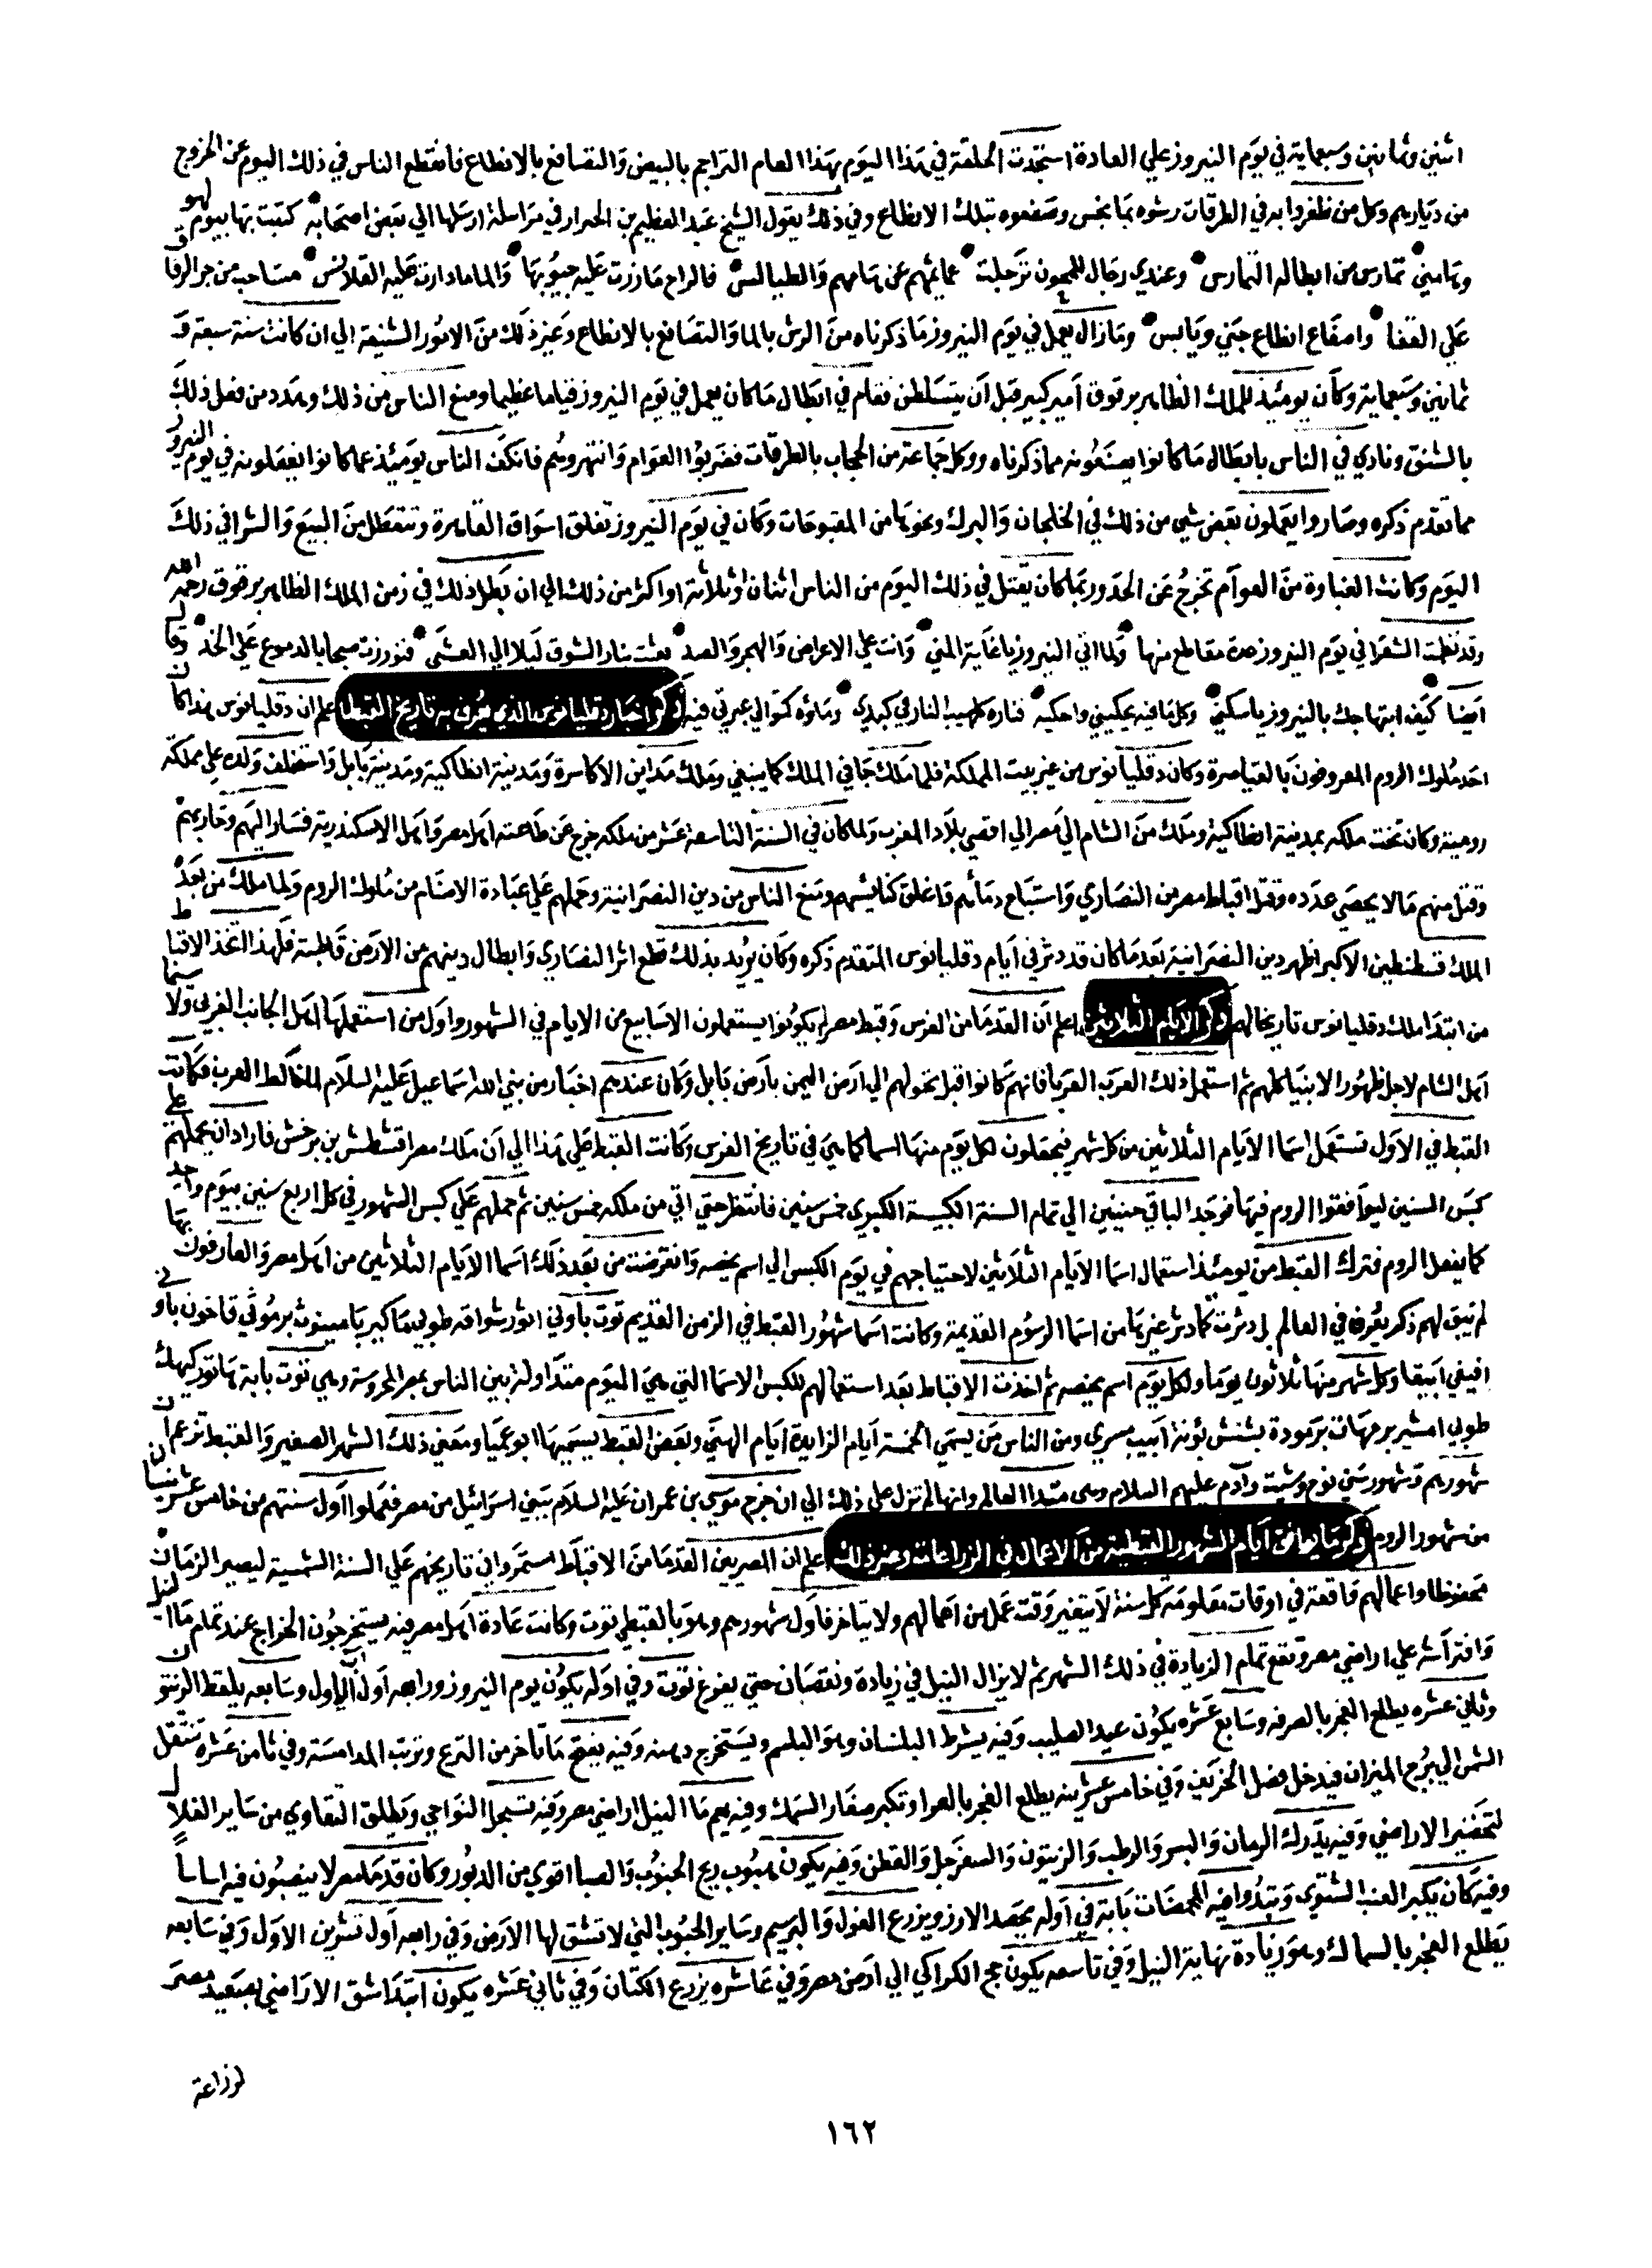 اثنين وثمانين وسبعماية في يوم النيروز علي العادة استجدت الحلفة في هذا اليوم بهذا العام التراجم بالبيض والتصافع بالانطاع فانقطع الناس في ذلك اليوم عن الخروج
من ديارهم وكل من ظفروا به في الطرقات رشوه بما نجس وصفعوه بتلك الانطاع وفي ذلك يقول الشيخ عبد العظيم بن الجزار في مراسلة ارسلها الي بعض اصحابه كتبت بها بيوم لهو
وهامتي تمارس من ابطاله التمارس وعندي رجال للمجون ترجلت عمايمهم عن هامهم والطيالس فالراح ما زرت عليه جيوبها وللما ما دارت عليه القلانس مساحب من جر الزقاق
علي القفا واصفاع انطاع جني ويابس وما زال يعمل في يوم النيروز ما ذكرناه من الرش بالما والتصافع بالانطاع وغير ذلك من الامور الشنيعة الي ان كانت سنة سبعة و
ثمانين وسبعماية وكان يوميذ الملك الظاهر برقوق امير كبير قبل ان يتسلطن فقام في ابطال ما كان يعمل في يوم النيروز قياما عظيما ومنع الناس من ذلك وهدد من فعل ذلك
بالشنق ونادي في الناس بابطال ما كانوا يصنعونه مما ذكرناه ووكل جماعة من الحجاب بالطرقات فضربوا العوام وانتهروهم فانكف الناس يوميذ عما كانوا يفعلونه في يوم النيروز
مما تقدم ذكره وصاروا يعملون بعض شي من ذلك في الخلجان والبرك ونحوها من المفترجات وكان في يوم النيروز تغلق اسواق القاهرة وتتعطل من البيع والشرا في ذلك
اليوم وكانت الغباوة من العوام تخرج عن الحد وربما كان يقتل في ذلك اليوم من الناس اثنان او ثلاثة او اكثر من ذلك الي ان بطل ذلك في زمن الملك الظاهر برقوق رحمه الله
وقد نظمت الشعرا في يوم النيروز عدة مقاطع منها ولما اتي النيروز يا غاية المني وانت علي الاعراض والهجر والصد بعثت بنار الشوق ليلا الي العشي فنورزت صبحا بالدموع علي الخد وقال
ايضا كيف ابتهاجك بالنيروز يا سكني وكل ما فيه يحكيني واحكيه فناره كلهيب النار في كبدي وماؤه كتوالي عبرتي فيه ذكر اخبار دقليانوس الذي يعرف به تاريخ القبط اعلم ان دقليانوس هذا كان
احد ملوك الروم المعروفون بالقياصرة وكان دقليانوس من غير بيت المملكة فلما ملك جافي الملك كما ينبغي وملك مداين الاكاسرة ومدينة انطاكية ومدينة بابل واستخلف ولده علي مملكة
رومية وكان تخت ملكه بمدينة انطاكية وملك من الشام الي مصر الي اقصي بلاد المغرب ولما كان في السنة التاسعة عشر من ملكه خرج عن طاعته اهل مصر واهل الاسكندرية فسار اليهم وحاربهم
وقتل منهم ما لا يحصي عدده وقتل اقباط مصر من النصاري واستباح دماهم واغلق كنايسهم ومنع الناس من دين النصرانية وحملهم علي عبادة الاصنام من ملوك الروم ولما ملك من بعده
الملك قسطنطين الاكبر اظهر دين النصرانية بعد ما كان قد دثر في ايام دقليانوس المتقدم ذكره وكان يريد بذلك قطع اثر النصاري وابطال دينهم من الارض قاطبة فلهذا اتخذ الاقباط
من ابتدا ملك دقليانوس تاريخا لهم ذكر الايام الثلاثين اعلم ان القدما من الفرس وقبط مصر لم يكونوا يستعملون الاسابيع من الايام في الشهور واول من استعملها اهل الجانب الغربي ولا سيما
اهل الشام لاجل ظهور الانبيا كلهم ثم استعمل ذلك العرب العربا فانهم كانوا قبل تحولهم الي ارض اليمن بارض بابل وكان عندهم اخبار من نبي الله اسماعيل عليه السلام لما خالط العرب فكانت
القبط في الاول تستعمل اسما الايام الثلاثين من كل شهر فيجعلون لكل يوم منها اسما كما هي في تاريخ الفرس وكانت القبط علي هذا الي ان ملك مصر اقشطش بن برخش فاراد ان يحملهم علي
كبس السنين ليوافقوا الروم فيها فوجد الباقي حينين الي تمام السنة الكبيسة الكبري خمس سنين فانتظر حتي اتي من ملكه خمس سنين ثم حملهم علي كبس الشهور في كل اربع سنين بيوم واحد
كما يفعل الروم فترك القبط من يوميذ استعمال اسما الايام الثلاثين لاحتياجهم في يوم الكبس الي اسم يخصه وانقرضت من بعد ذلك اسما الايام الثلاثين من اهل مصر والعارفون بها
لم تبق لهم ذكر يعرف في العالم بل دثرت كما دثر غيرها من اسما الرسوم القديمة وكانت اسما شهور القبط في الزمن القديم توت باوني اثور شواق طوبي ماكير بامينوث برموثي قاخون باوني
افيفي ابيقا وكل شهر منها ثلاثون يوما ولكل يوم اسم يخصه ثم اخذت الاقباط بعد استعمالهم للكبس الاسما التي هي اليوم متداولة بين الناس بمصر المحروسة وهي توت بابة هاتور كيهك
طوبي امشير برمهات برمودة بشنش بؤنة ابيب مسري ومن الناس من يسمي الخمسة ايام الزايدة ايام النسي وبعض القبط يسميها ابوغميا ومعني ذلك الشهر الصغير والقبط تزعم ان
شهورهم وشهور سني نوح وشيث وآدم عليهم السلام وهي مبتدا العالم وانها لم تزل علي ذلك الي ان خرج موسي بن عمران عليه السلام ببني اسرائيل من مصر فعملوا اول سنتهم من خامس عشر نيسان
من شهور الروم ذكر ما يوافق ايام الشهور القبطية من الاعمال في الزراعات وغير ذلك اعلم ان المصريين القدما من الاقباط استمروا في تاريخهم علي السنة الشمسية ليصير الزمان
محفوظا واعمالهم واقعة في اوقات معلومة كل سنة لا يتغير وقت عمل من اعمالهم ولا يتاخر فاول شهورهم وهو بالقبطي توت وكانت عادة اهل مصر فيه يستخرجون الخراج عند تمام ما النيل
وافتراشه علي اراضي مصر وتقع تمام الزيادة في ذلك الشهر ثم لا يزال النيل في زيادة ونقصان حتي يفرغ توت وفي اوله يكون يوم النيروز ورابعه اول ايلول وسابعه يلقط الزيتون
وثاني عشره يطلع الفجر بالصرفه وسابع عشره يكون عيد الصليب وفيه يشرط البلسان وهو البلسم ويستخرج دهنه وفيه يفتح ما تاخر من الترع وترتب المدامسة وفي ثامن عشره تنتقل
الشمس الي برج الميزان فيدخل فصل الخريف وفي خامس عشرينه يطلع الفجر بالعوا وتكبر صغار السمك وفيه يعم ما النيل اراضي مصر وفيه تسجل النواحي وتطلق التقاوي من ساير الغلال
لتخضير الاراضي وفيه يدرك الرمان والبسر والرطب والزيتون والسفرجل والقطن وفيه يكون هبوب ريح الجنوب والصبا اقوي من الدبور وكان قدما مصر لا ينصبون فيه اساسا
وفيه كان يكبر العنب الشتوي وتبدوا فيه المحمضات بابة في اوله يحصد الارز ويزرع الفول والبرسيم وساير الحبوب التي لا تشق لها الارض وفي رابعه اول تشرين الاول وفي سابعه
يطلع الفجر بالسماك وهو زيادة نهاية النيل وفي تاسعه يكون مجي الكراكي الي ارض مصر وفي عاشره يزرع الكتان وفي ثاني عشره يكون ابتدا شق الاراضي بصعيد مصر
لزراعة
١٦٢